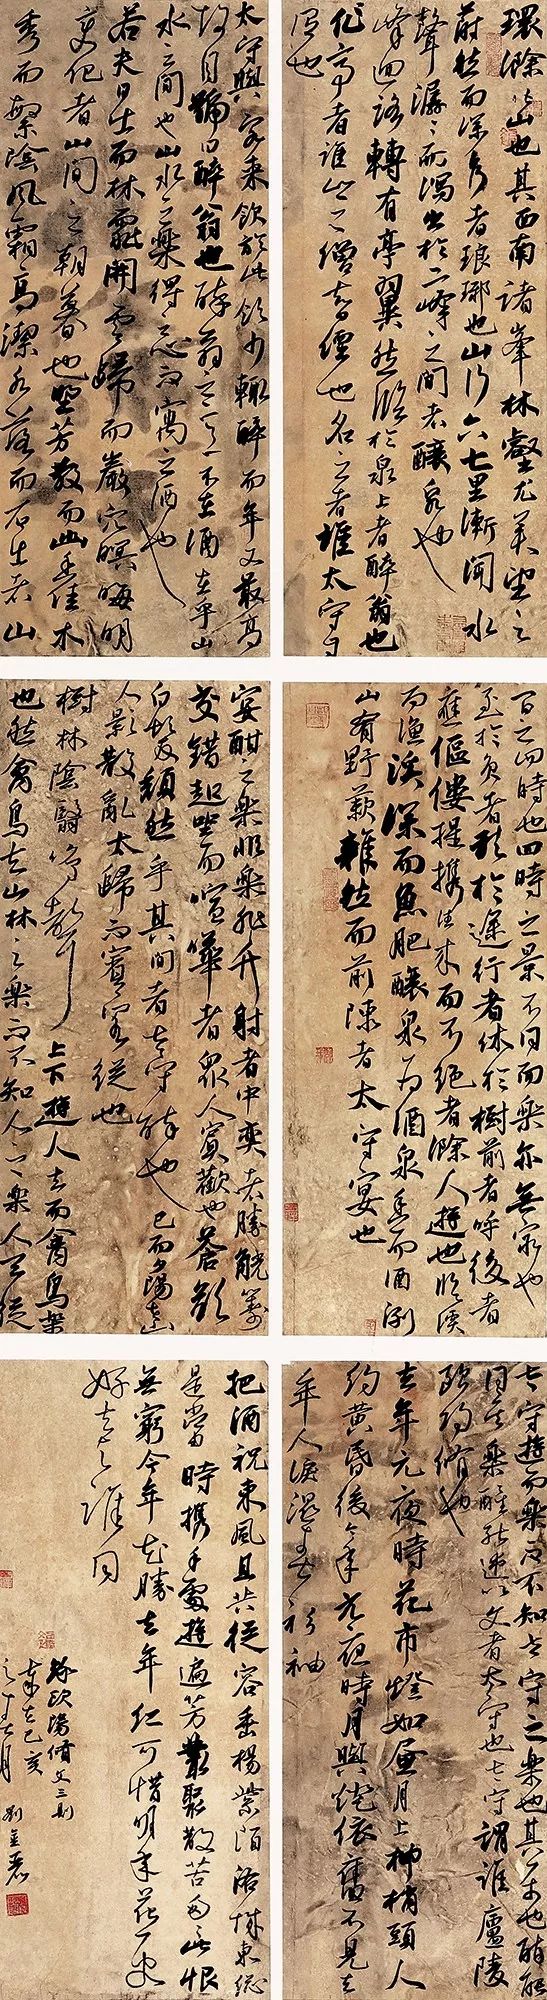 環滁皆山也其西南諸峯林壑尤美望之
蔚然而深秀者琅琊也山行六七里漸聞水
聲潺潺而瀉出於二峰之間者釀泉也
峰迴路轉有亭翼然臨於泉上者醉翁也
作亭者誰山之僧智僊也名之者誰太守自
謂也
太守與客來飲於此飲少輒醉而年又最高
故自號曰醉翁也醉翁之意不在酒在乎山
水之間也山水之樂得之心而寓之酒也
若夫日出而林霏開雲歸而巖穴暝晦明
變化者山間之朝暮也野芳發而幽香佳木
秀而繁陰風霜高潔水落而石出者山
間之四時也四時之景不同而樂亦無窮也
至於負者歌於途行者休於樹前者呼後者
應傴僂提攜往來而不絕者滁人遊也臨溪
而漁溪深而魚肥釀泉為酒泉香而酒洌
山肴野蔌雜然而前陳者太守宴也
宴酣之樂非絲非竹射者中奕者勝觥籌
交錯起坐而諠譁者眾人賓歡也蒼顏
白髮頹然乎其間者太守醉也已而夕陽在山
人影散亂太歸而賓客從也
樹林陰翳鳴聲上下遊人去而禽鳥樂
也然禽鳥知山林之樂而不知人之樂人知從
太守遊而樂而不知太守之樂也其樂也醉能
同其樂醒能述以文者太守也太守謂誰廬陵
歐陽脩也
去年元夜時花市燈如晝月上柳梢頭人
約黃昏後今年元夜時月與燈依舊不見去
年人淚濕春衫袖
把酒祝東風且共從容垂楊紫陌洛城東總
是當時攜手處遊遍芳叢聚散苦匆匆此恨
無窮今年花勝去年紅可惜明年花更
好知與誰同
錄歐陽脩文三則
歲在己亥